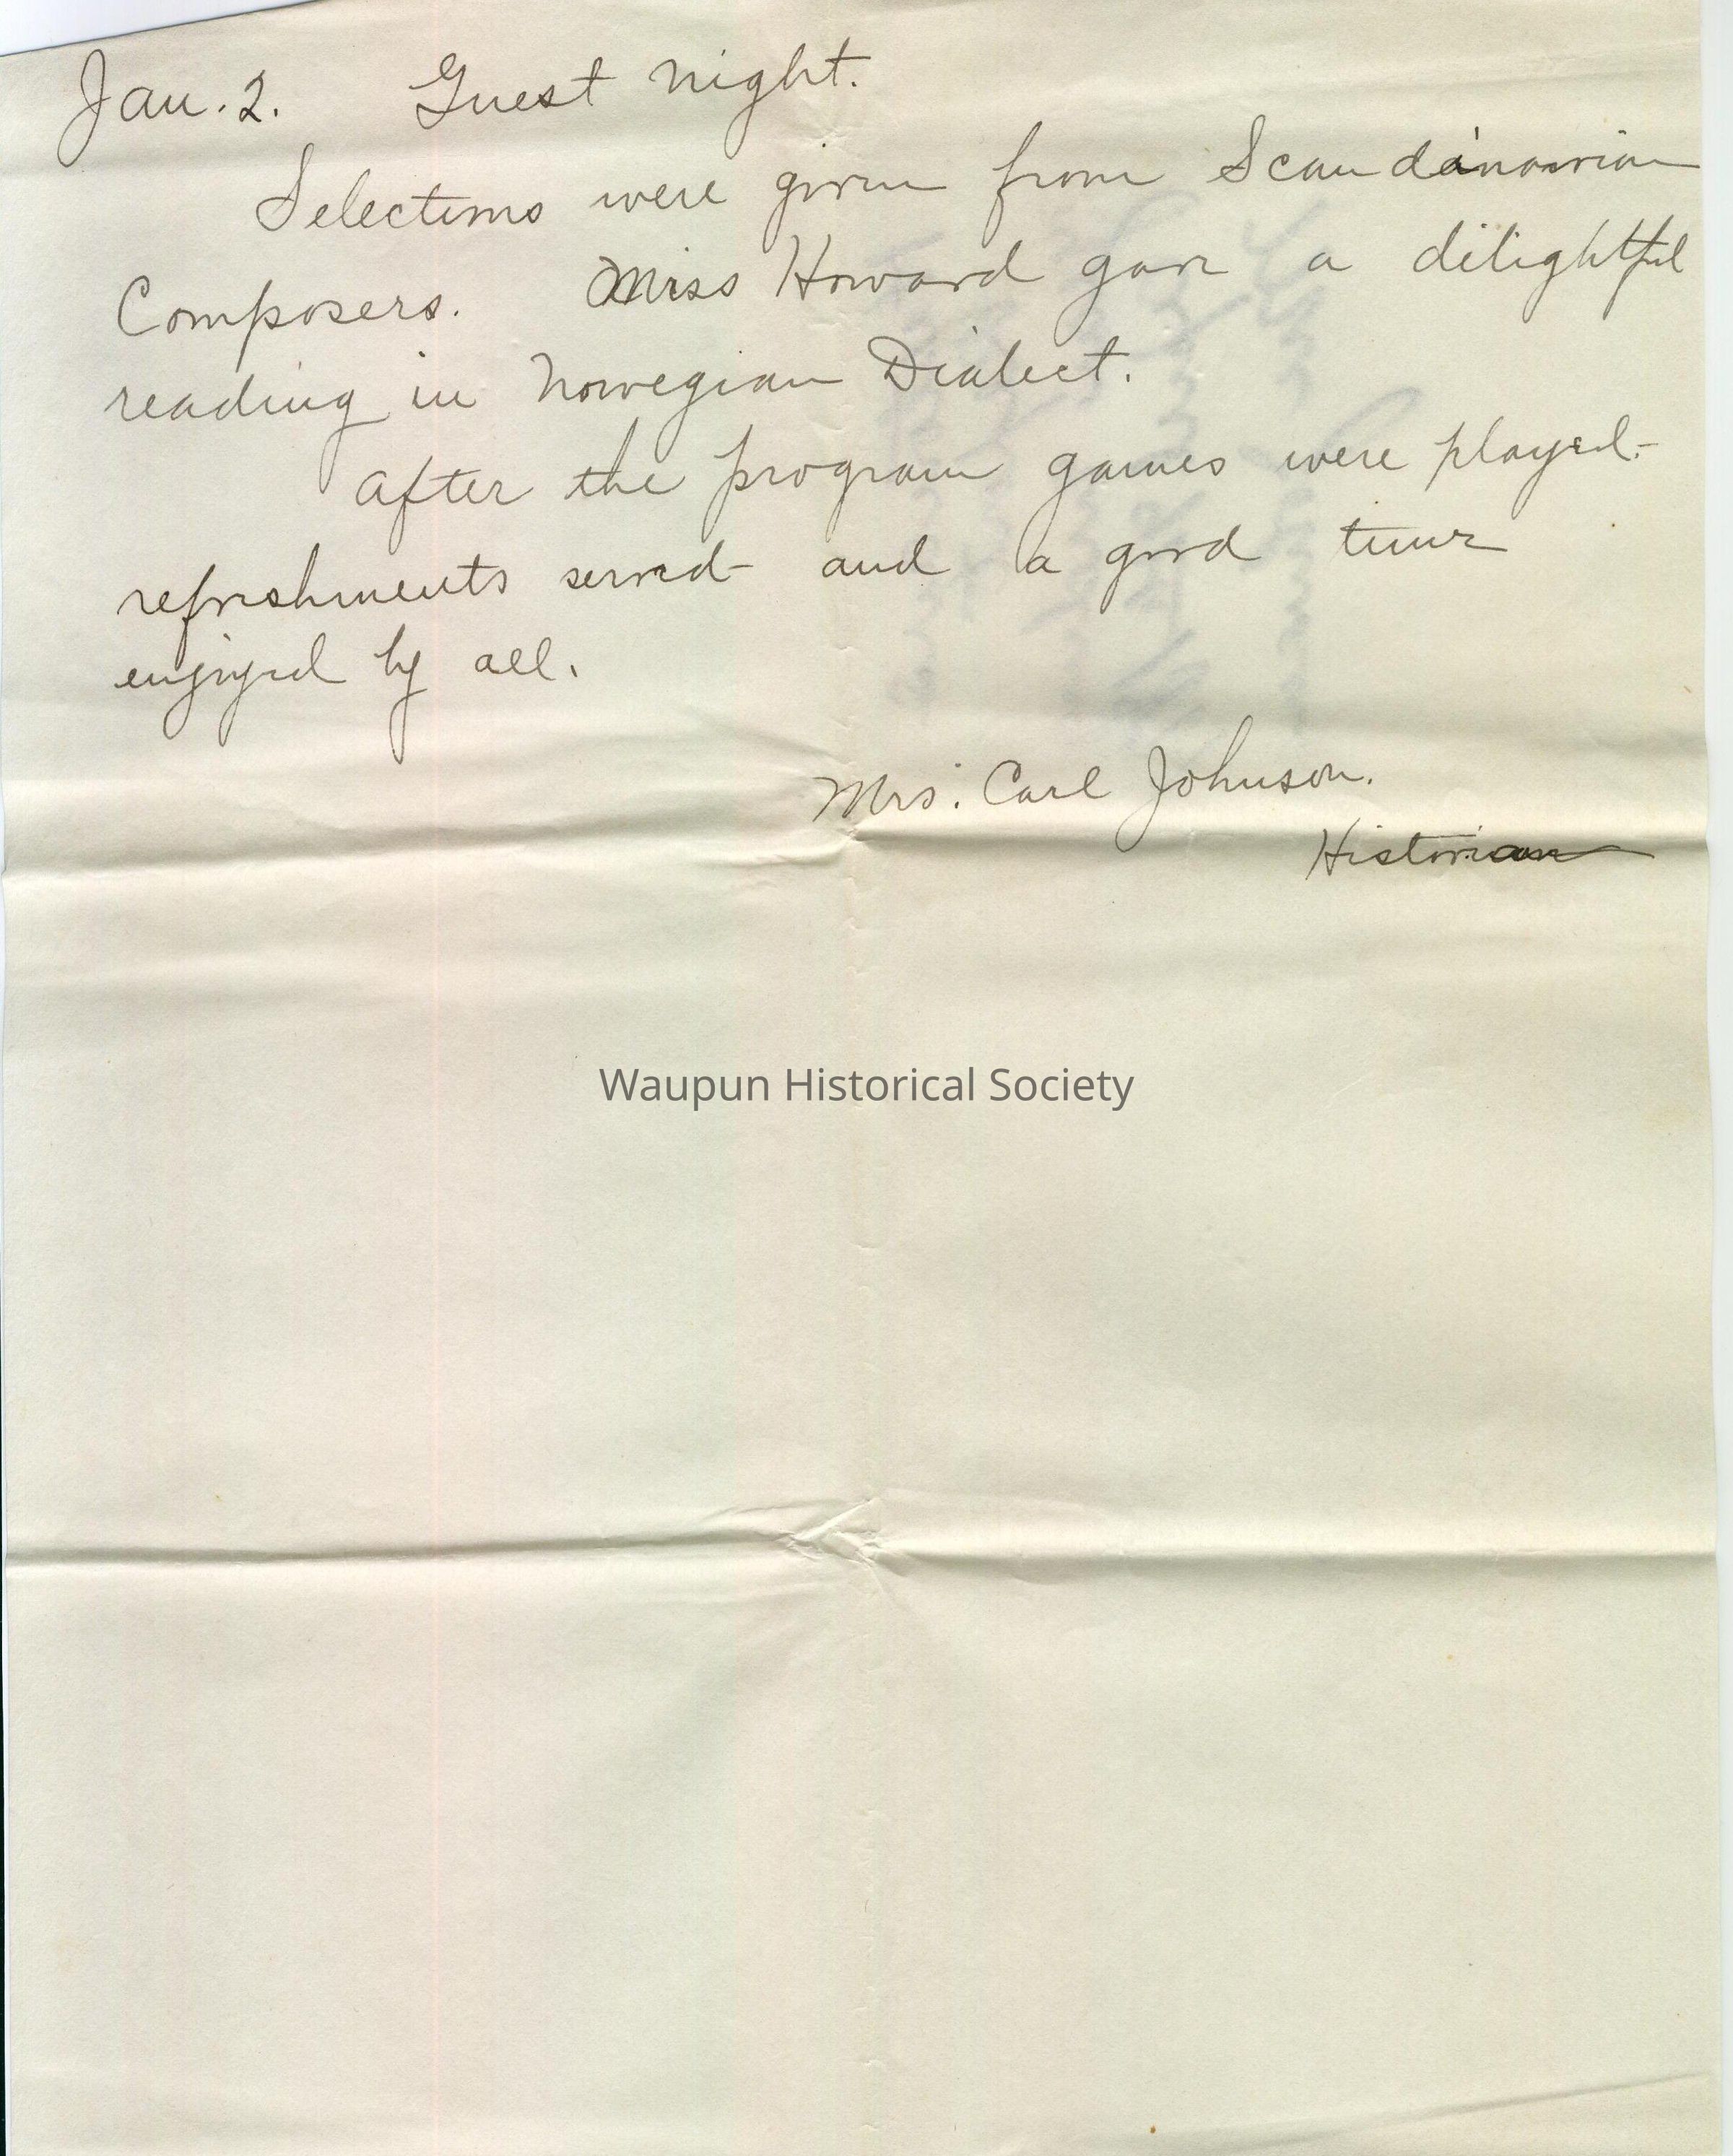 Jan. 2. Guest night.
Selections were given from Scandanavian
Composers. Miss Howard gave a delightful
reading in Norwegian Dialect.
After the program games were played-
refreshments served- and a good time
enjoyed by all.
Mrs. Carl Johnson.
Historian
Waupun Historical Society